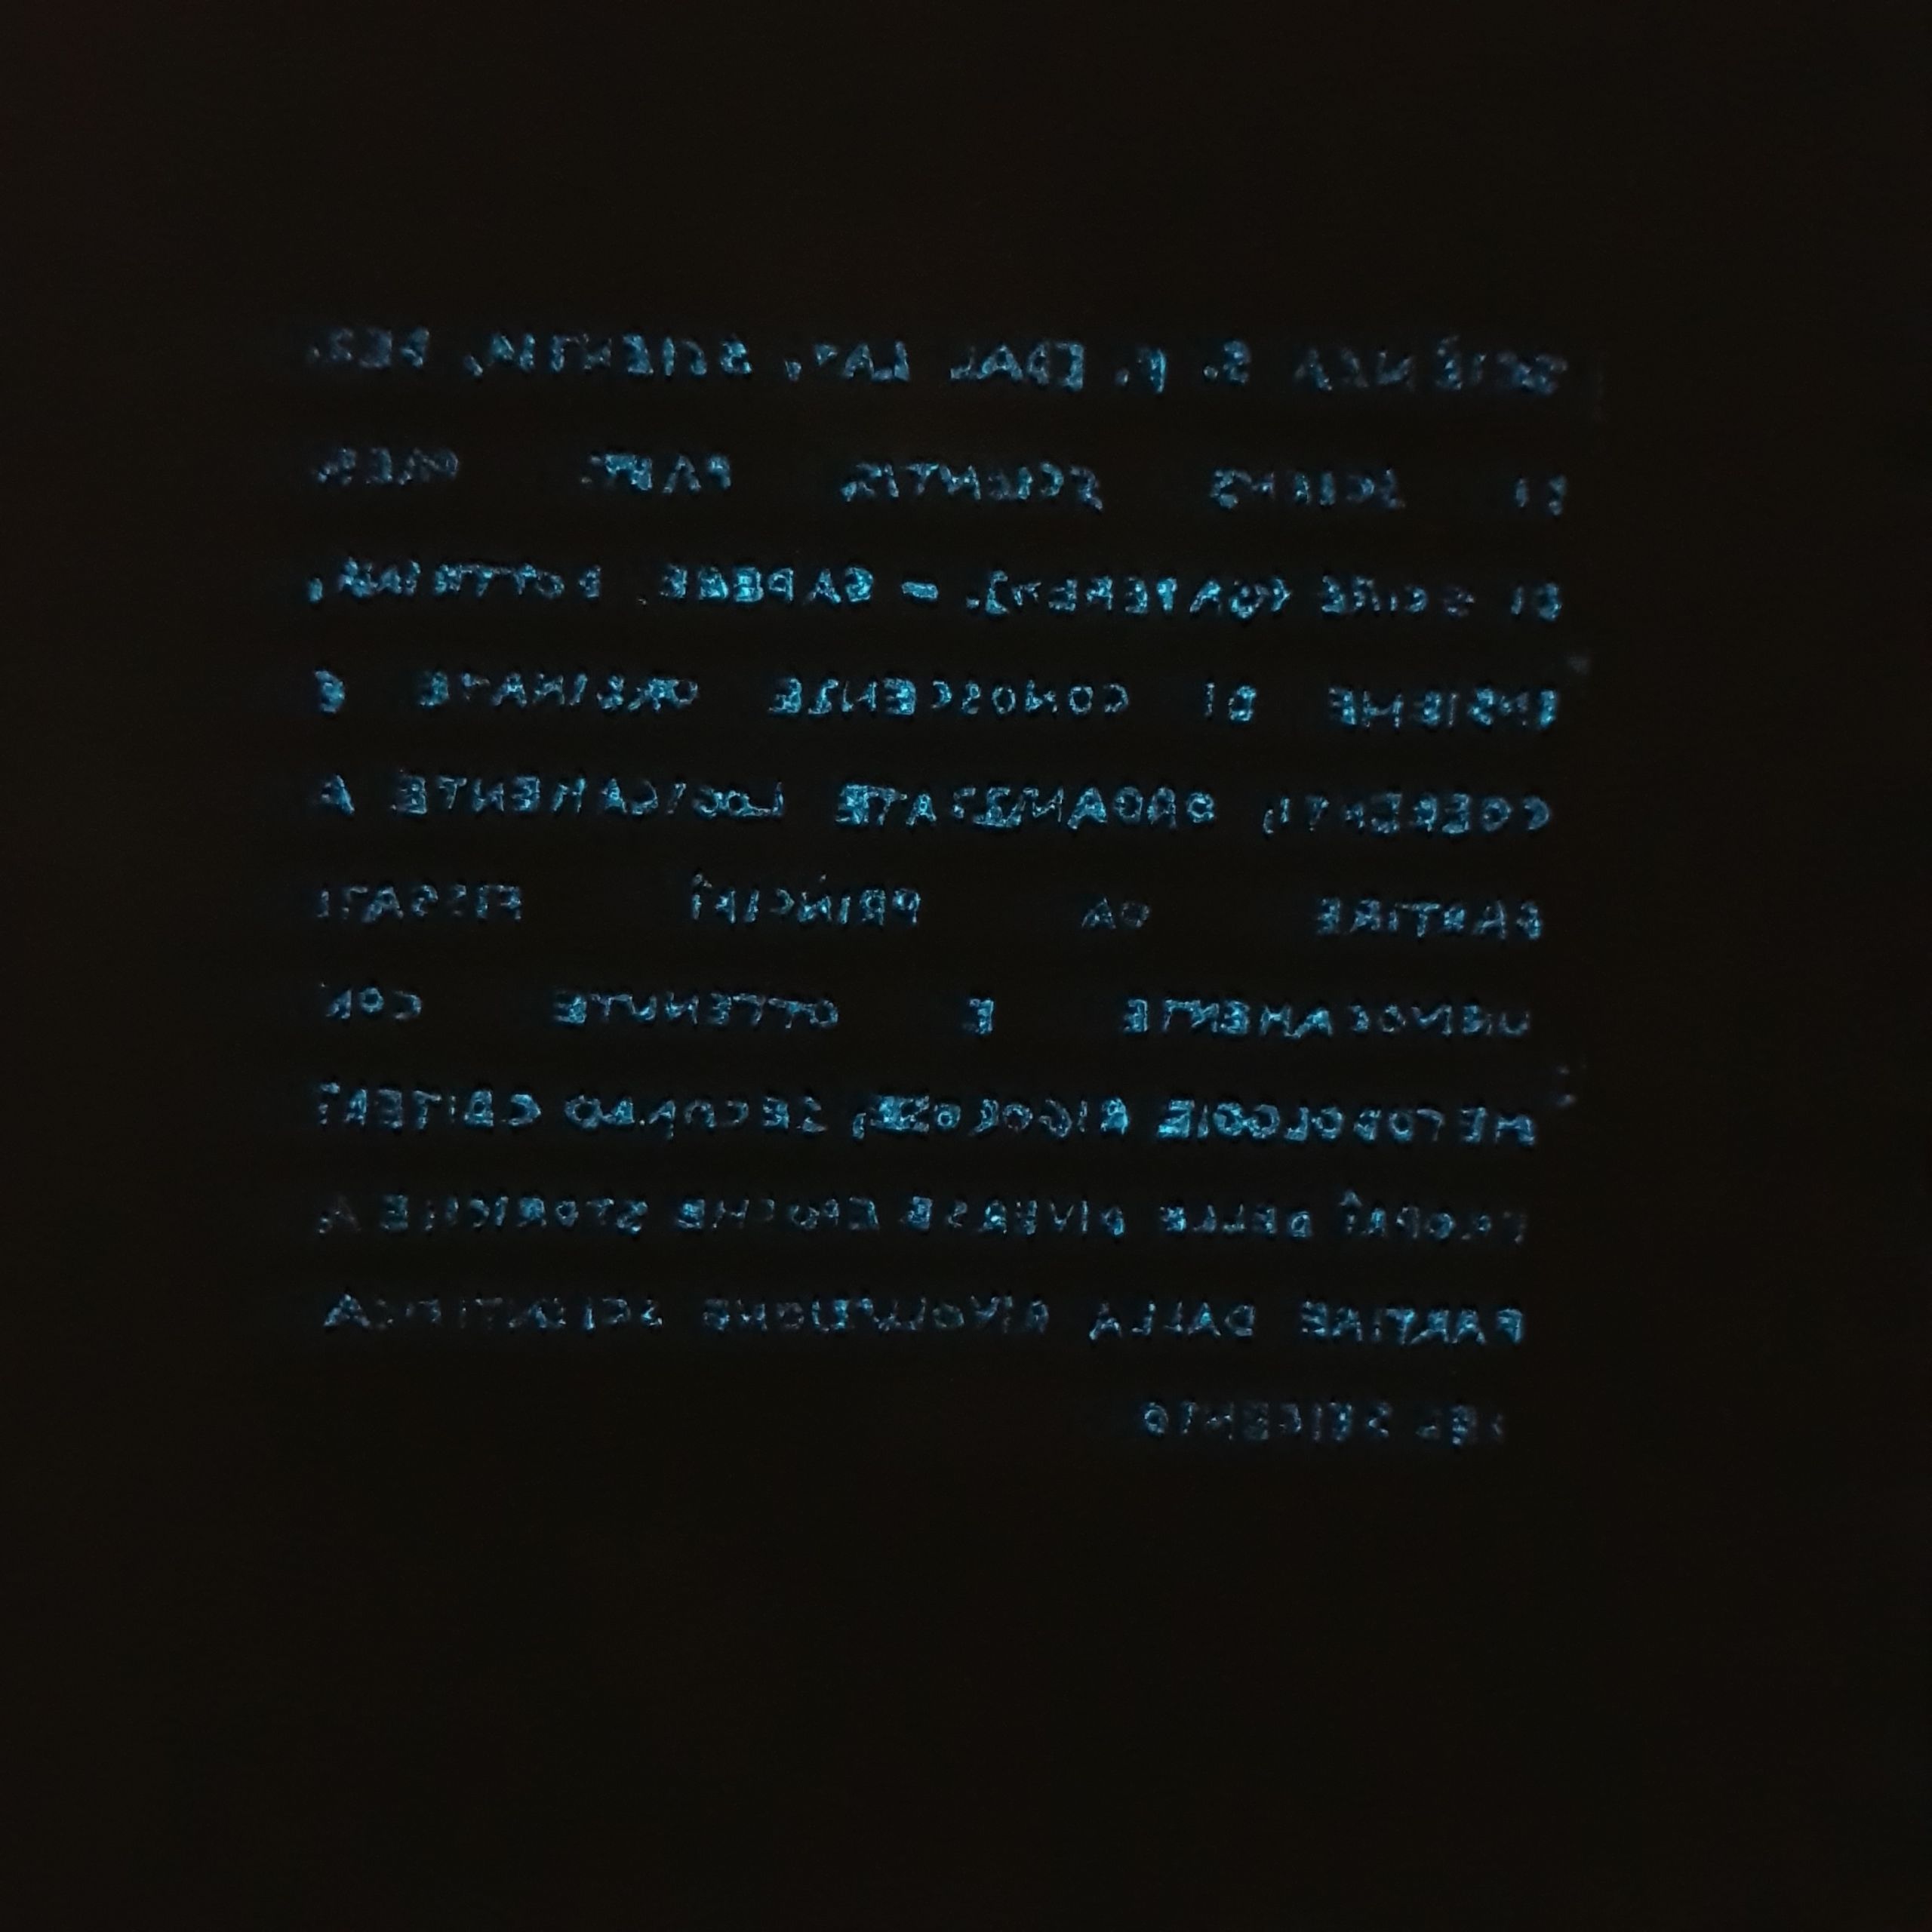 SCIÈNZA S. F. [DAL LAT. SCIENTIA, DER.
DI SCIENS SCIENTIS, PART. PRES.
DI SCIRE «SAPERE»]. – SAPERE, DOTTRINA,
INSIEME DI CONOSCENZE ORDINATE E
COERENTI, ORGANIZZATE LOGICAMENTE A
PARTIRE DA PRINCIPÎ FISSATI
UNIVOCAMENTE E OTTENUTE CON
METODOLOGIE RIGOROSE, SECONDO CRITERÎ
PROPRÎ DELLE DIVERSE EPOCHE STORICHE A
PARTIRE DALLA RIVOLUZIONE SCIENTIFICA
DEL SEICENTO